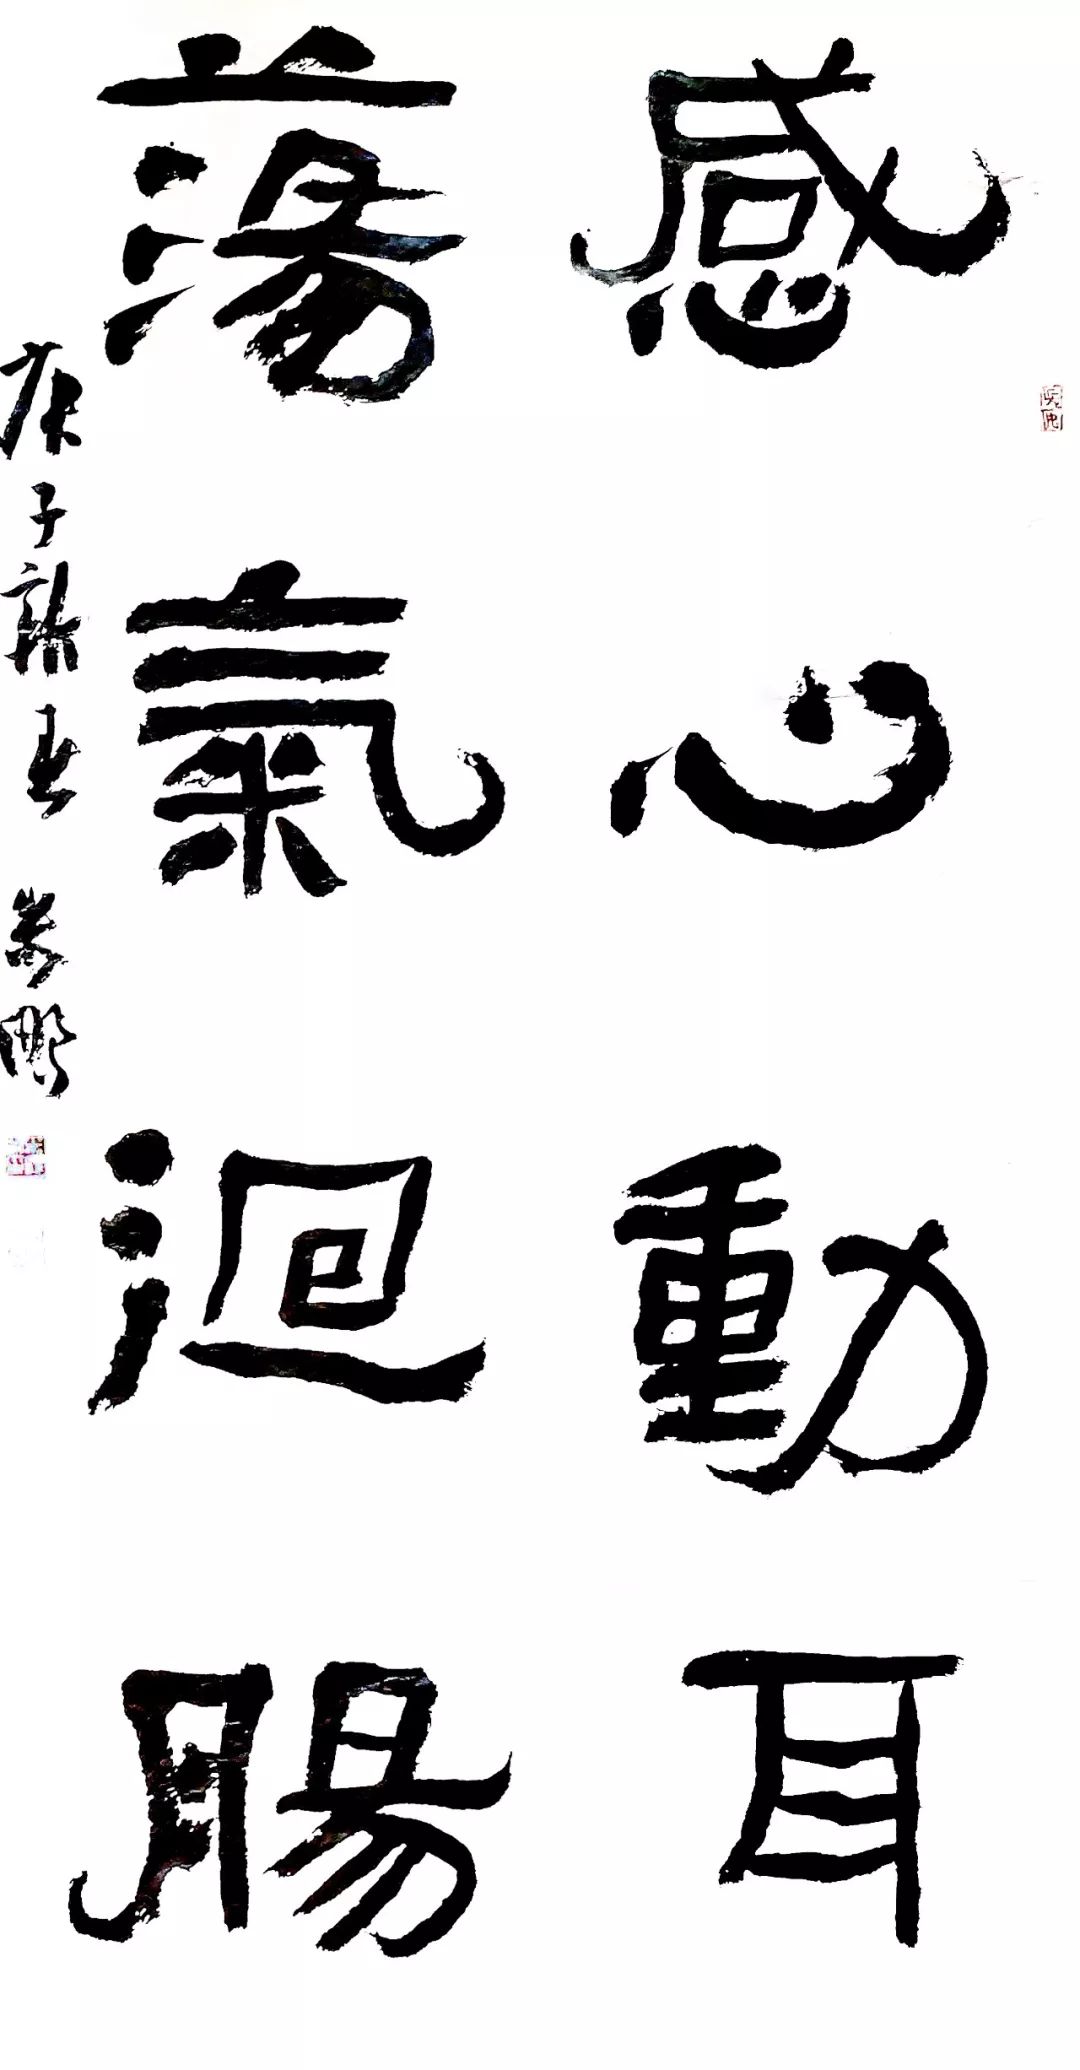 感心動耳
蕩氣迴腸
庚子新春